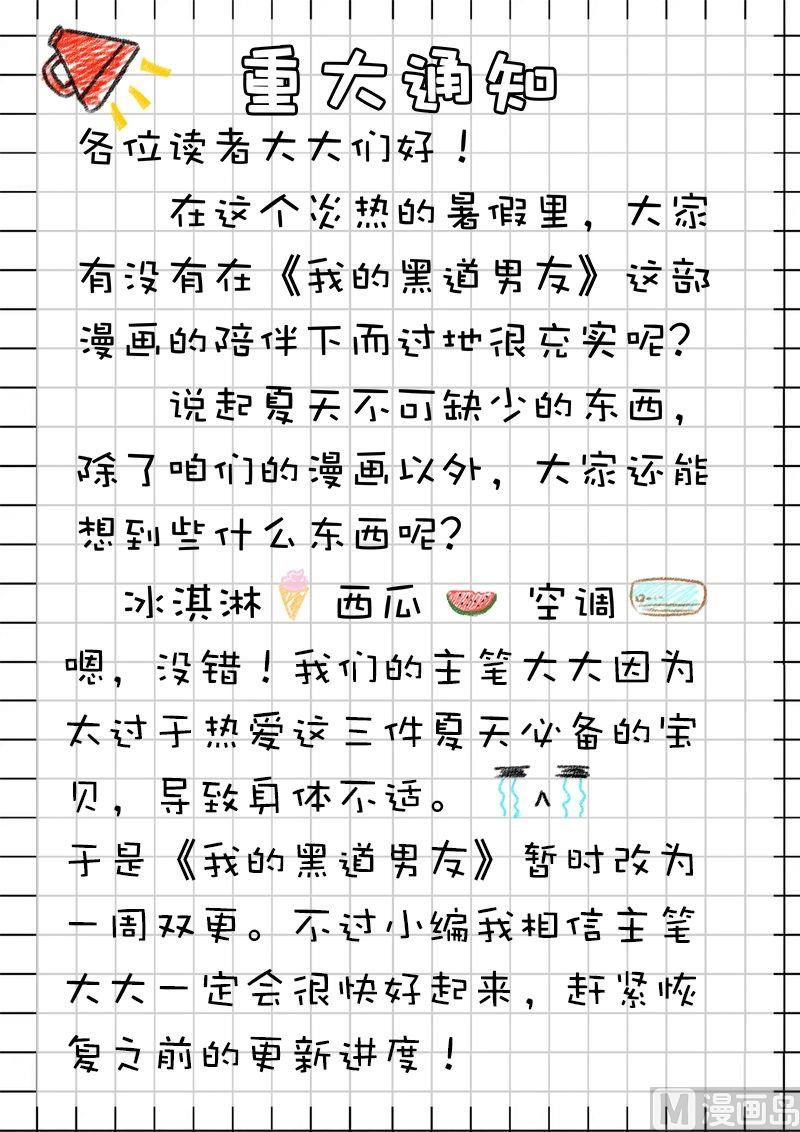 重大通知
各位读者大大们好！
在这个炎热的暑假里，大家
有没有在《我的黑道男友》这部
漫画的陪伴下而过地很充实呢？
说起夏天不可缺少的东西，
除了咱们的漫画以外，大家还能
想到些什么东西呢？
冰淇淋 西瓜 空调
嗯，没错！我们的主笔大大因为
太过于热爱这三件夏天必备的宝
贝，导致身体不适。
于是《我的黑道男友》暂时改为
一周双更。不过小编我相信主笔
大大一定会很快好起来，赶紧恢
复之前的更新进度！
M漫画岛